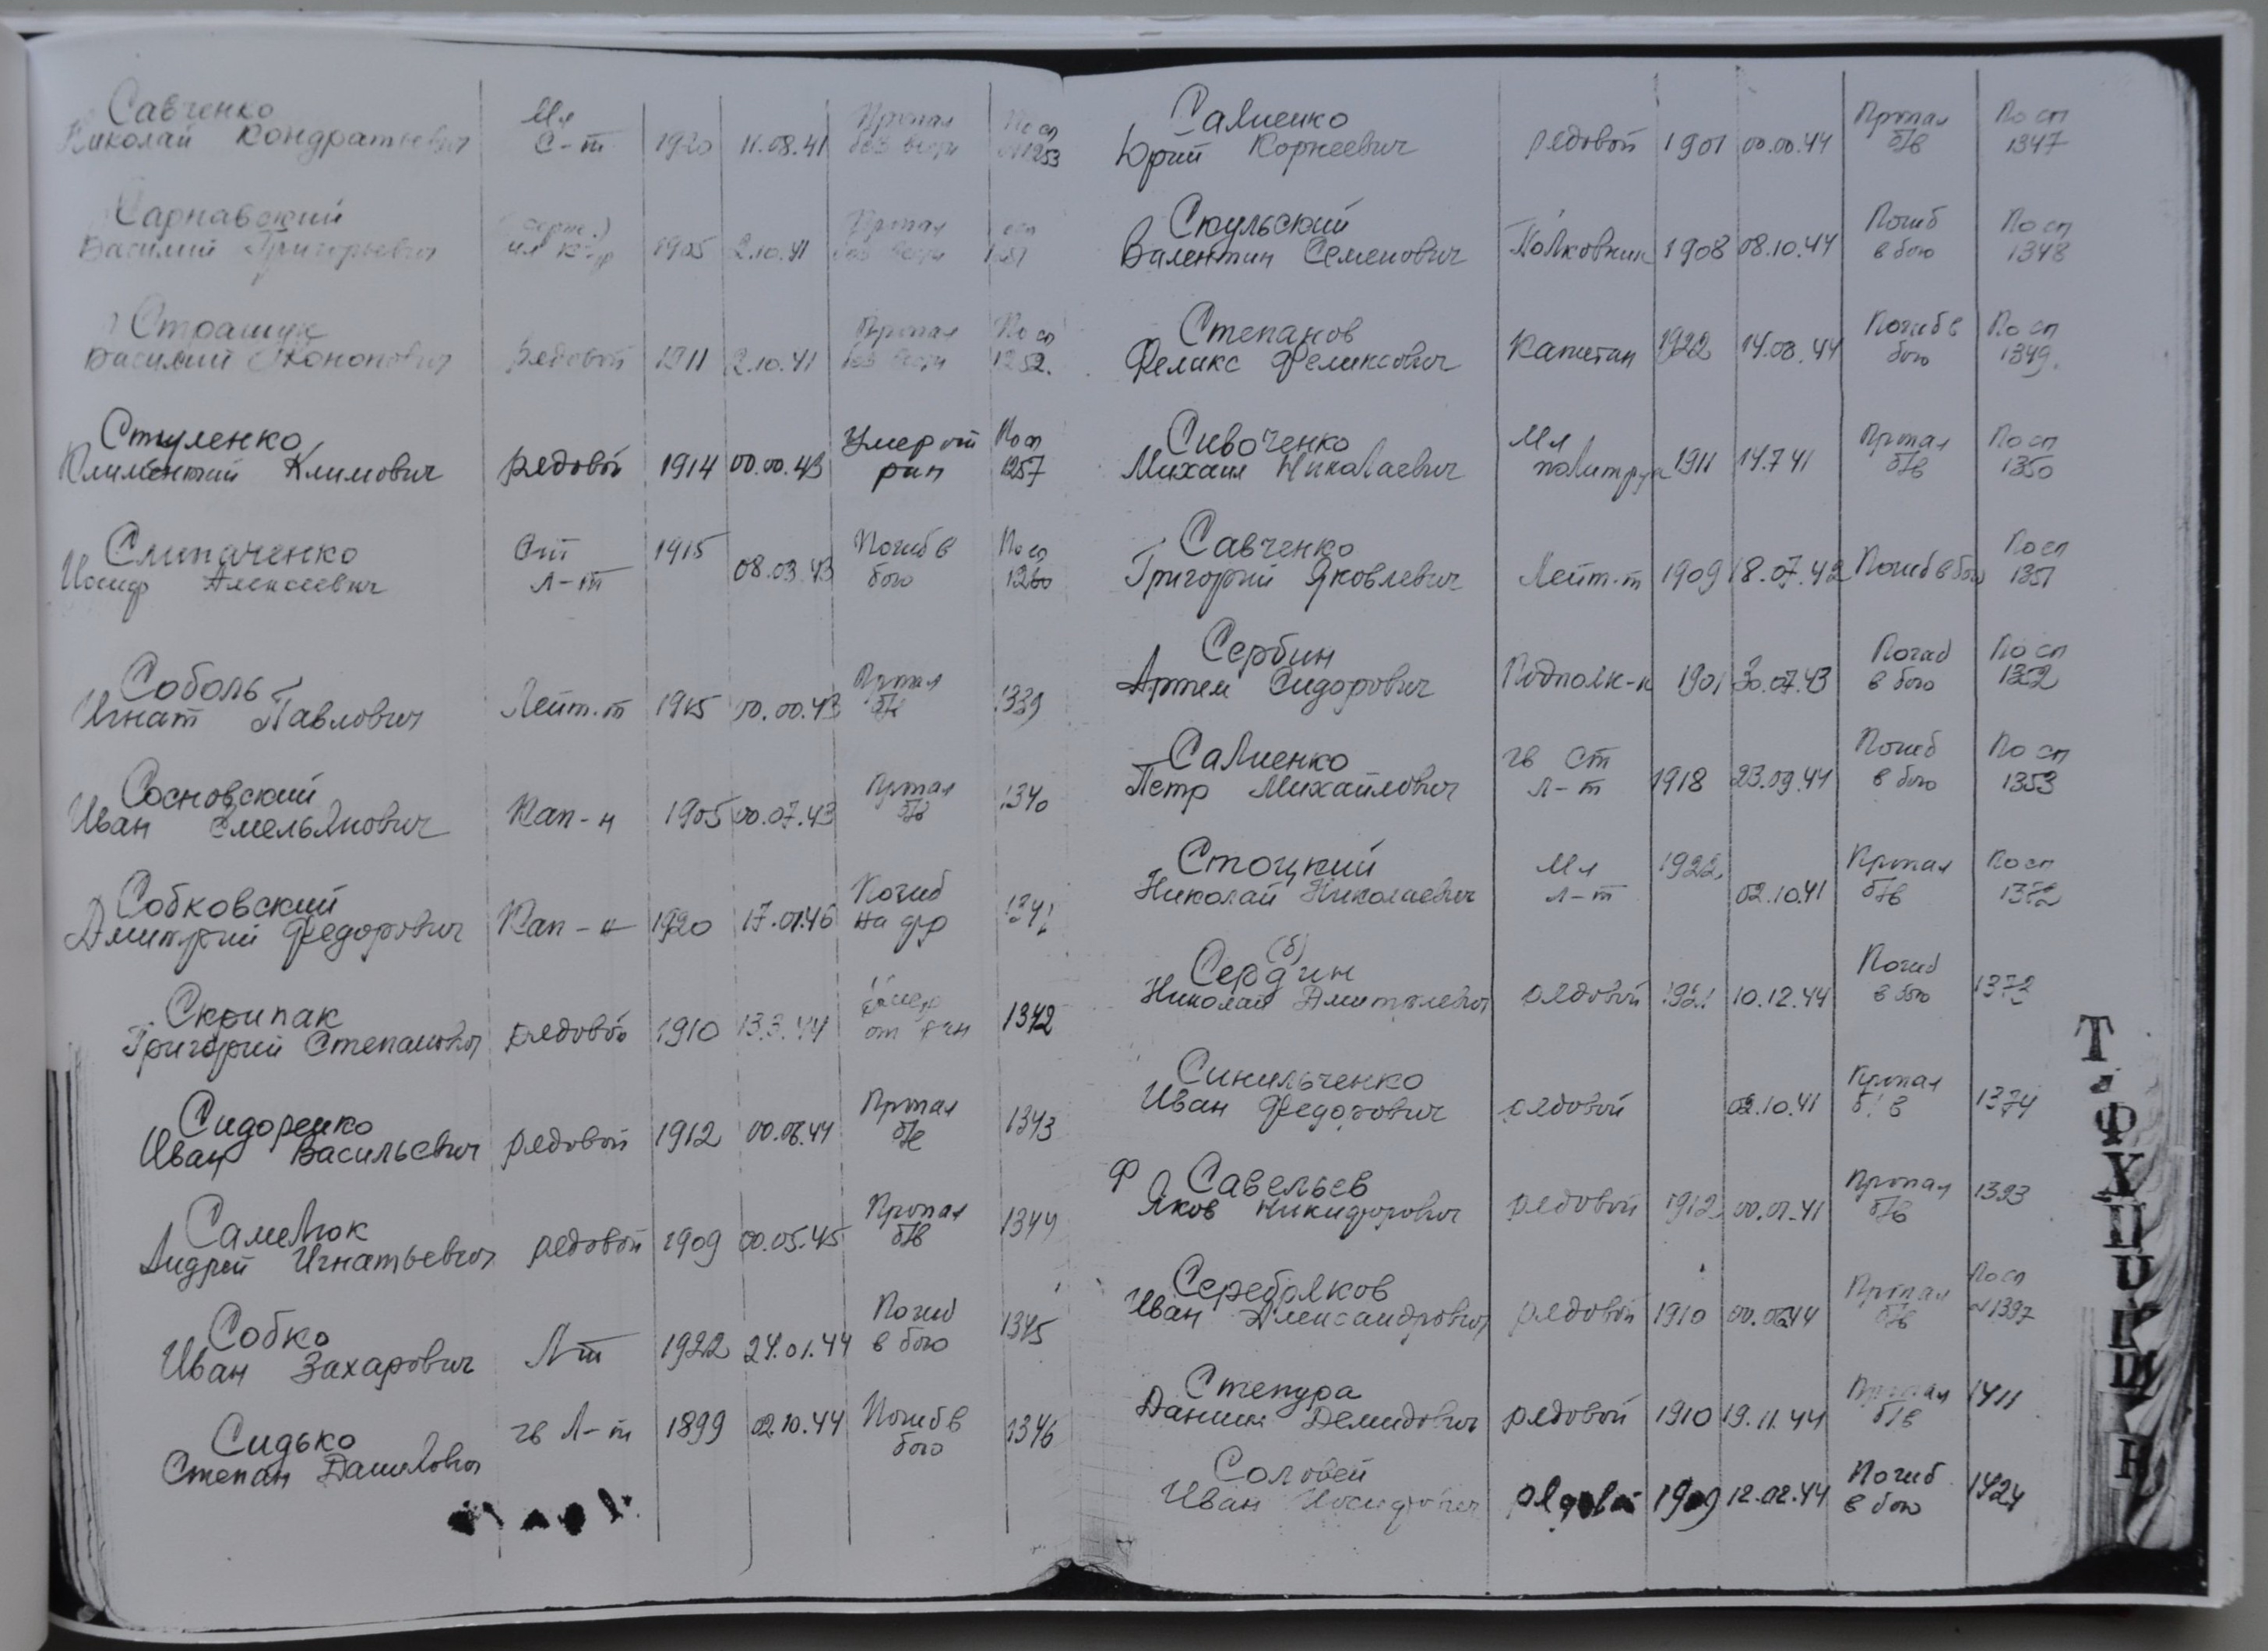 Савченко
Николай Кондратьевич Мл С-т 1920 11.08.41 Пропал без вести По сп 1253
Сарнавский
Василий Григорьевич 1905 2.10.41 Пропал без вести
Страшук
Василий Кононович рядовой 1911 2.10.41 Пропал без вести По сп 1252.
Стуленко
Климентий Климович рядовой 1914 00.00.43 Умер от ран По сп 1257
Слипаченко
Иосиф Алексеевич Ст Л-т 1915 08.03.43 Погиб в бою По сп 1260
Соболь
Игнат Павлович Лейт-т 1915 00.00.43 Пропал б/в 1339
Сосновский
Иван Емельянович Кап-н 1905 00.07.43 Пропал б/в 1340
Собковский
Дмитрий Федорович Кап-н 1920 17.01.46 Погиб на фр 1341
Скрипак
Григорий Степанович рядовой 1910 13.3.44 Умер от ран 1342
Сидоренко
Иван Васильевич рядовой 1912 00.06.44 Пропал б/в 1343
Самелюк
Андрей Игнатьевич рядовой 1909 00.05.45 Пропал б/в 1344
Собко
Иван Захарович Л-т 1922 24.01.44 Погиб в бою 1345
Сидько
Степан Данилович гв Л-т 1899 02.10.44 Погиб в бою 1346
Салиенко
Юрий Корнеевич рядовой 1901 00.00.44 Пропал б/в По сп 1347
Скульский
Валентин Семенович Полковник 1908 08.10.44 Погиб в бою По сп 1348
Степанов
Феликс Феликсович Капитан 1922 14.08.44 Погиб в бою По сп 1349.
Сивоченко
Михаил Николаевич Мл политрук 1911 14.7 41 Пропал б/в По сп 1350
Савченко
Григорий Яковлевич Лейт-т 1909 18.07.42 Погиб в бою По сп 1351
Сербин
Артем Сидорович Подполк-к 1901 30.07.43 Погиб в бою По сп 1352
Салиенко
Петр Михайлович гв Ст Л-т 1918 23.09.44 Погиб в бою По сп 1353
Стоцкий
Николай Николаевич Мл Л-т 1922 02.10.41 Пропал б/в По сп 1372
(б)
Сердин
Николай Дмитриевич рядовой 1921 10.12.44 Погиб в бою 1372
Синильченко
Иван Федорович рядовой 02.10.41 Пропал б/в 1374
Ф Савельев
Яков Никифорович рядовой 1912 00.01.41 Пропал б/в 1393
Серебряков
Иван Александрович рядовой 1910 00.06.44 Пропал б/в По сп 1397
Степура
Даниил Демидович рядовой 1910 19.11.44 Пропал б/в 1411
Соловей
Иван Иосифович рядовой 1909 12.02.44 Погиб в бою 1424
Т
Ф
Х
Ц